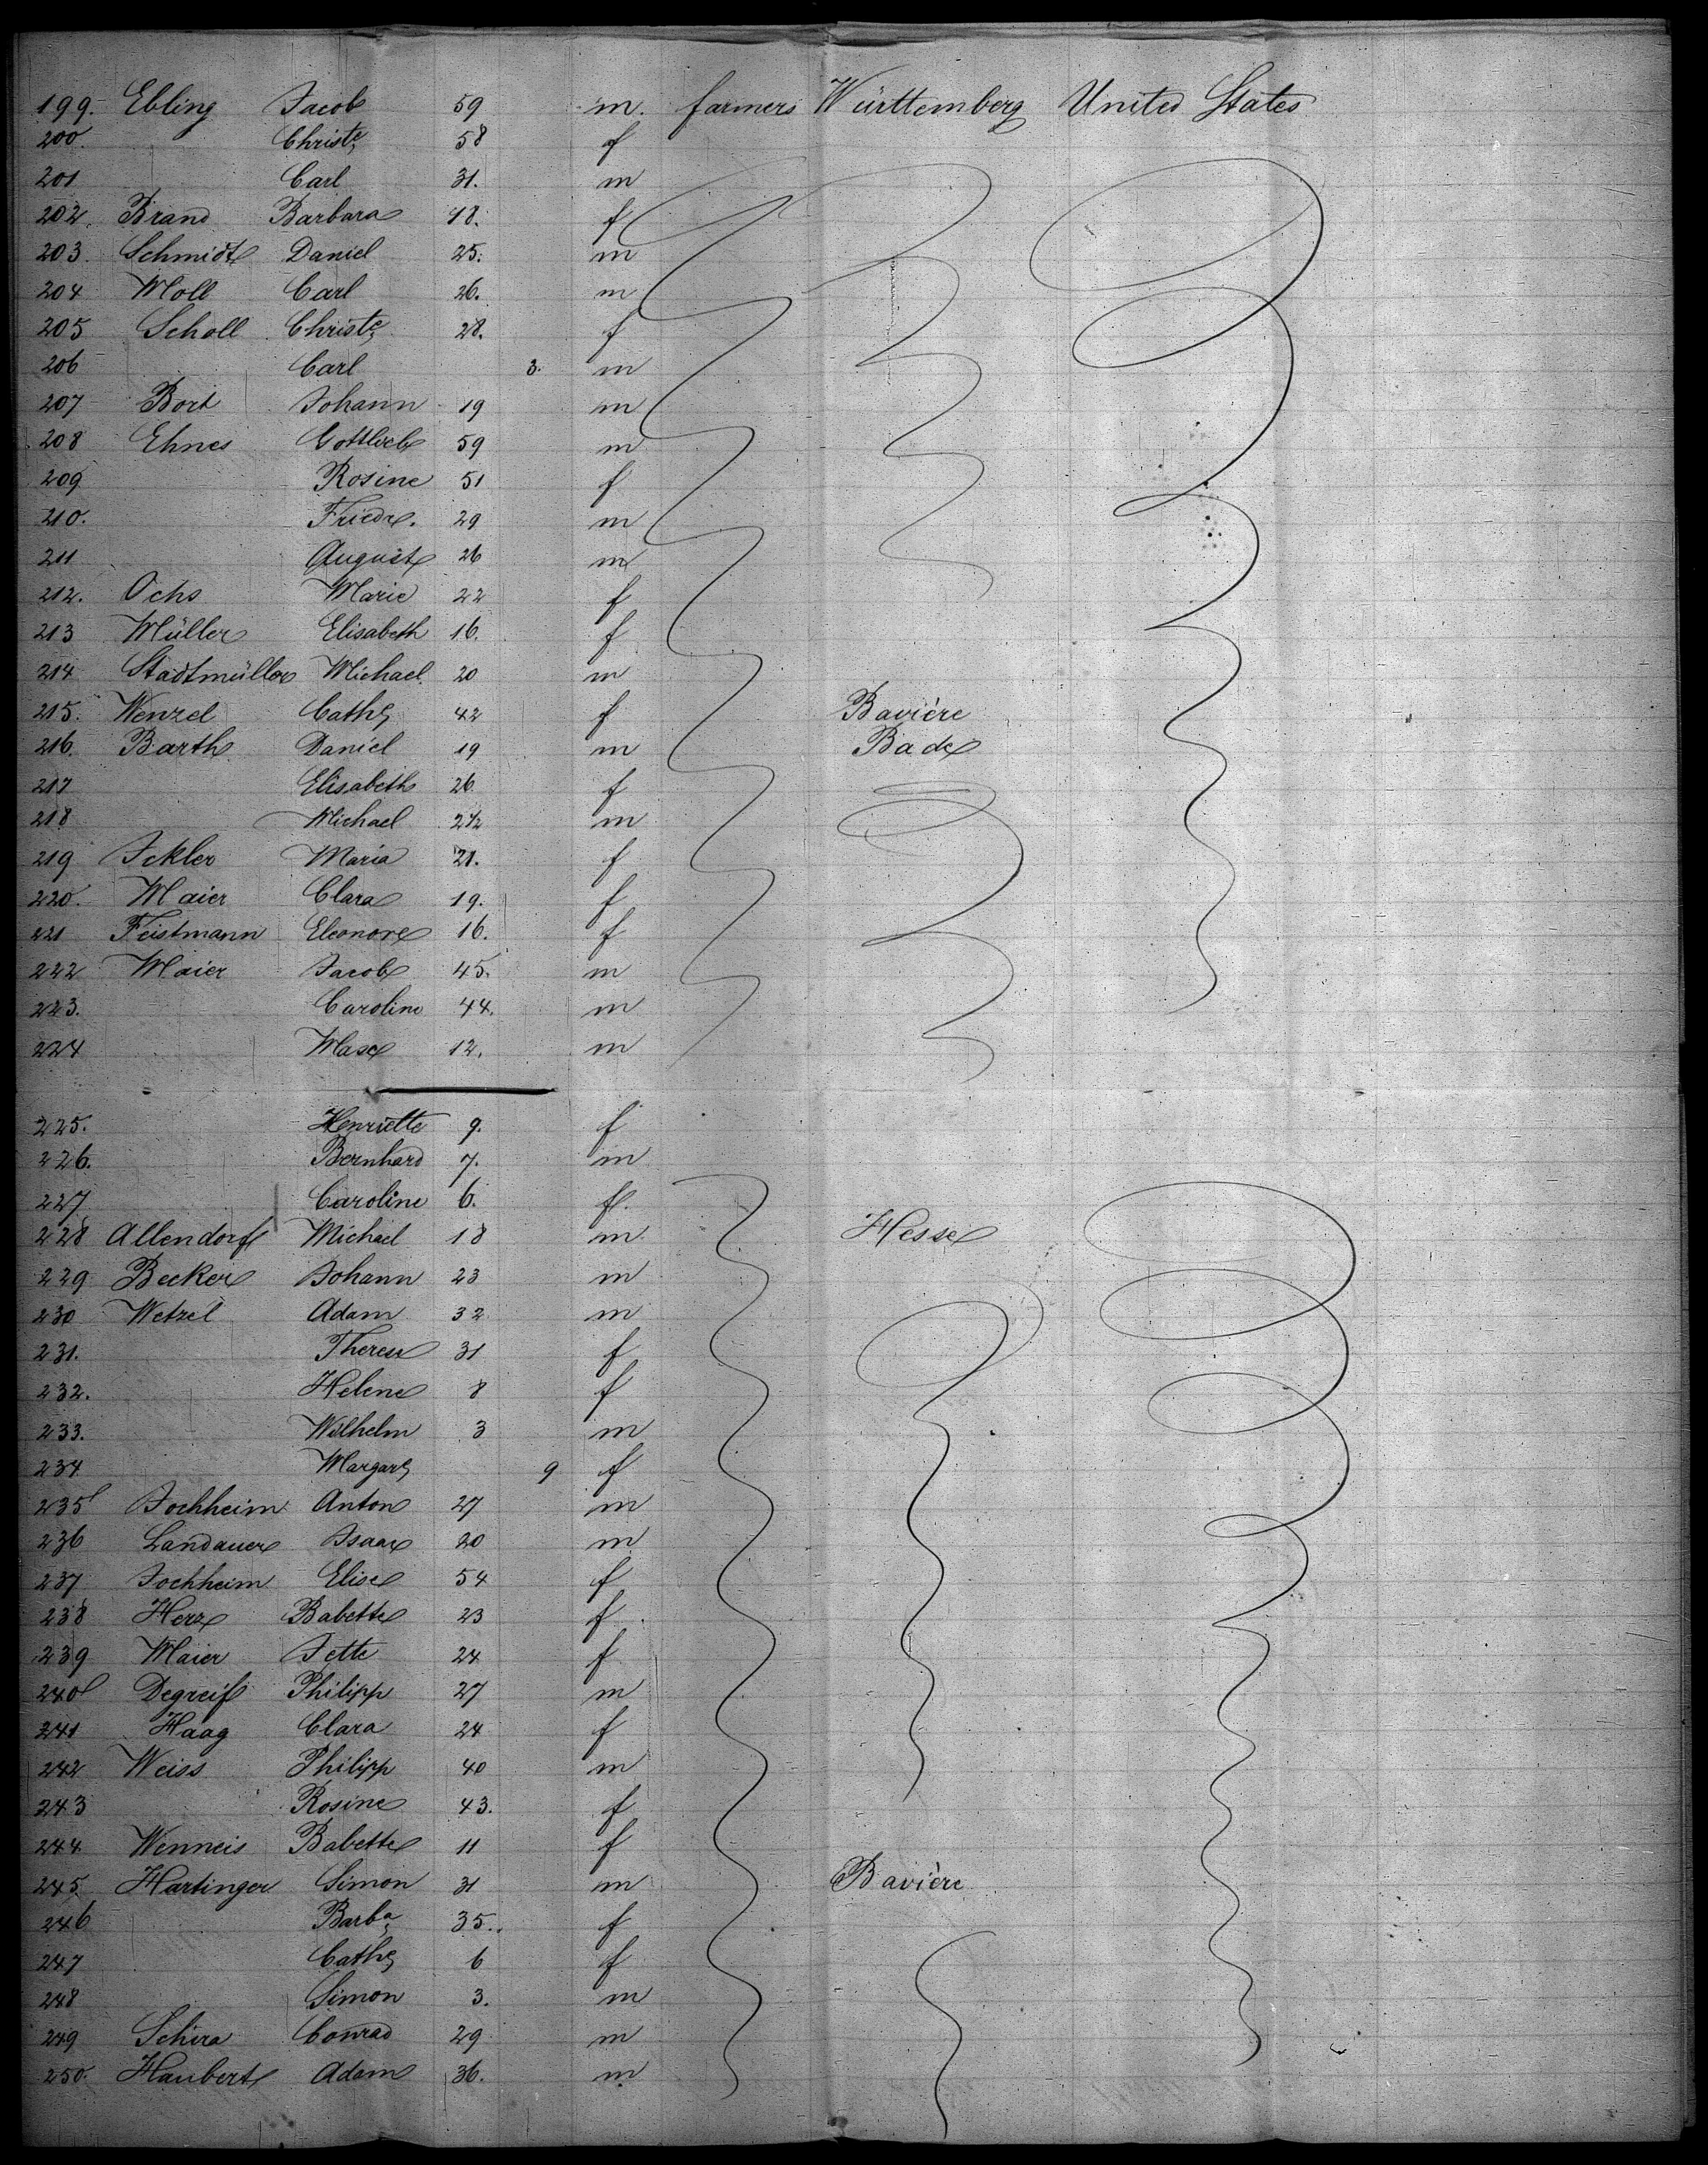 199. Ebling Jacob 59 m. farmers Württemberg United States
200. Christe 58 f
201 Carl 31. m
202. Brand Barbara 18. f
203. Schmidt Daniel 25. m
204 Moll Carl 26. m
205 Scholl Christe 28. f
206 Carl 3. m
207 Bort Johann 19 m
208 Ehnes Gottlieb 59 m
209 Rosine 51 f
210. Friedr. 29 m
211 August 26 m
212. Ochs Marie 22 f
213 Müller Elisabeth 16. f
214 Stadtmüller Michael 20 m
215. Wenzel Cath 42 f Bavière
216. Barth Daniel 19 m Bade
217 Elisabeth 26 f
218 Michael 2 1/2 m
219 Ickler Maria 21. f
220. Maier Clara 19. f
221 Feistmann Eleonore 16. f
222 Maier Jacob 45. m
223. Caroline 44. m
224 Max 12. m
225. Henriette 9. f
226. Bernhard 7. m
227 Caroline 6. f.
228 Allendorf Michael 18 m Hesse
229 Becker Johann 23 m
230 Wetzel Adam 32 m
231. Therese 31 f
232. Helene 8 f
233. Wilhelm 3 m
234 Margar 9 f
235 Jochheim Anton 27 m
236 Landauer Isaac 20 m
237 Jochheim Elise 54 f
238 Herz Babette 23 f
239 Maier Jette 24 f
240 Degreif Philipp 27 m
241 Haag Clara 24 f
242 Weiss Philipp 40 m
243 Rosine 43. f
244 Wenneis Babette 11 f
245. Hartinger Simon 31 m Bavière
246 Barba 35. f
247 Cath 6 f
248 Simon 3. m
249 Schira Conrad 29 m
250. Haubert Adam 36. m